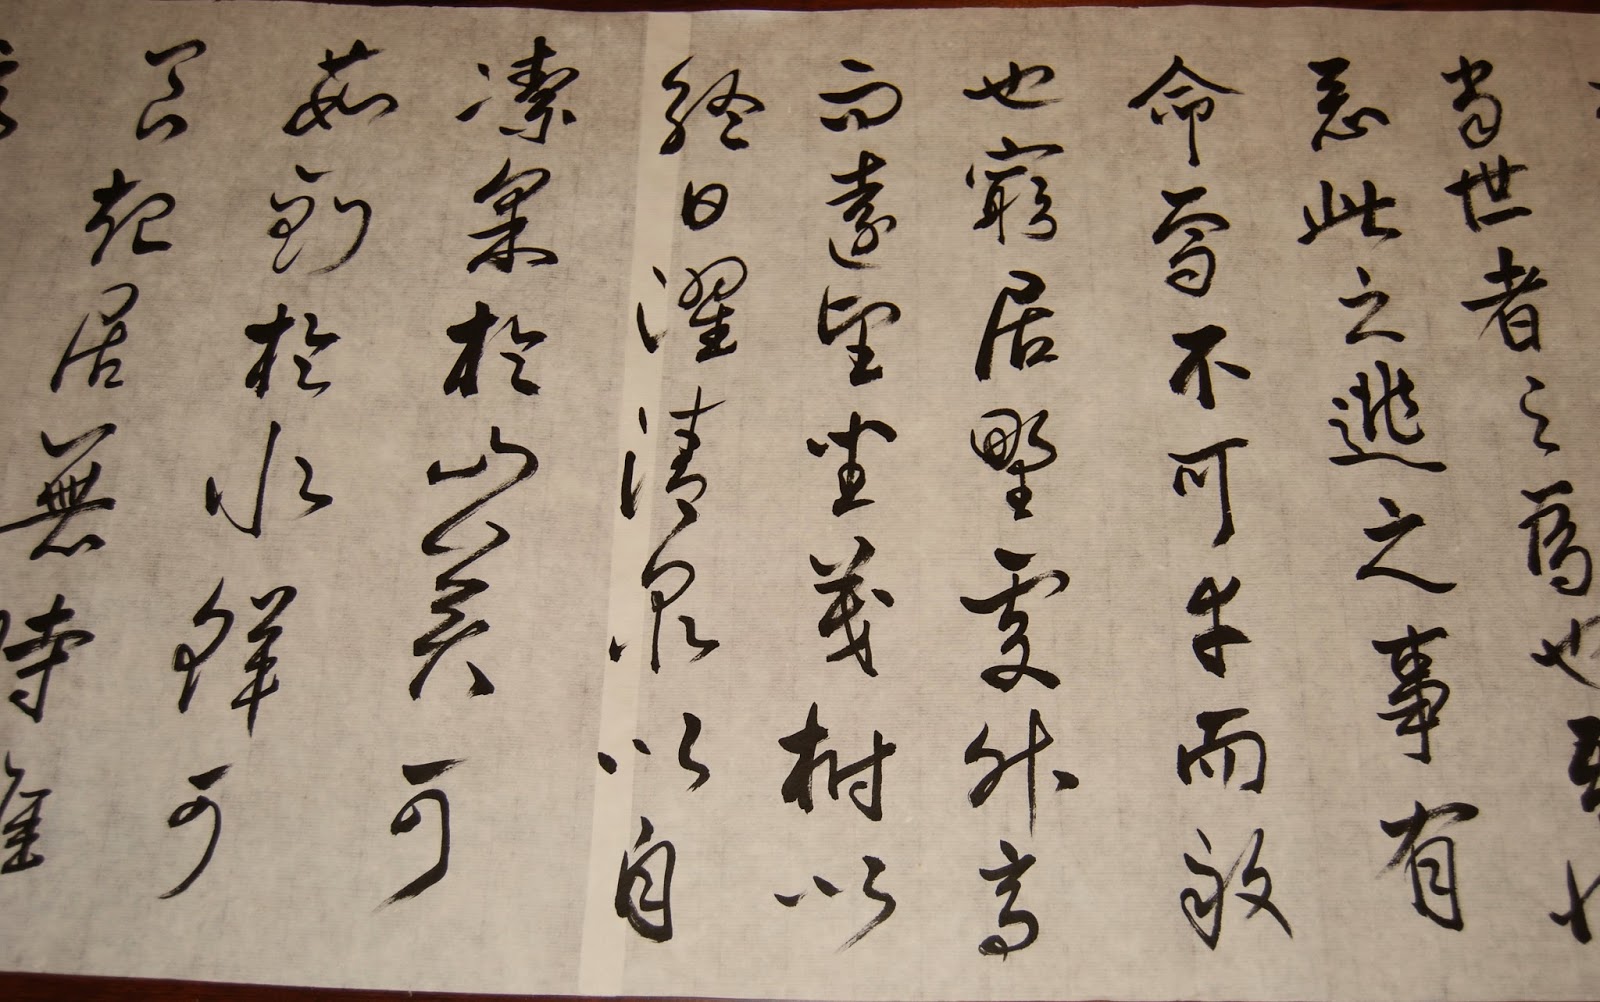 當世者之為也
惡此之逃之事有
命焉不可幸而致
也窮居野處升高
而遠望坐茂樹以
終日濯清泉以自
潔采於山美可
茹釣於水鮮可
食起居無時惟